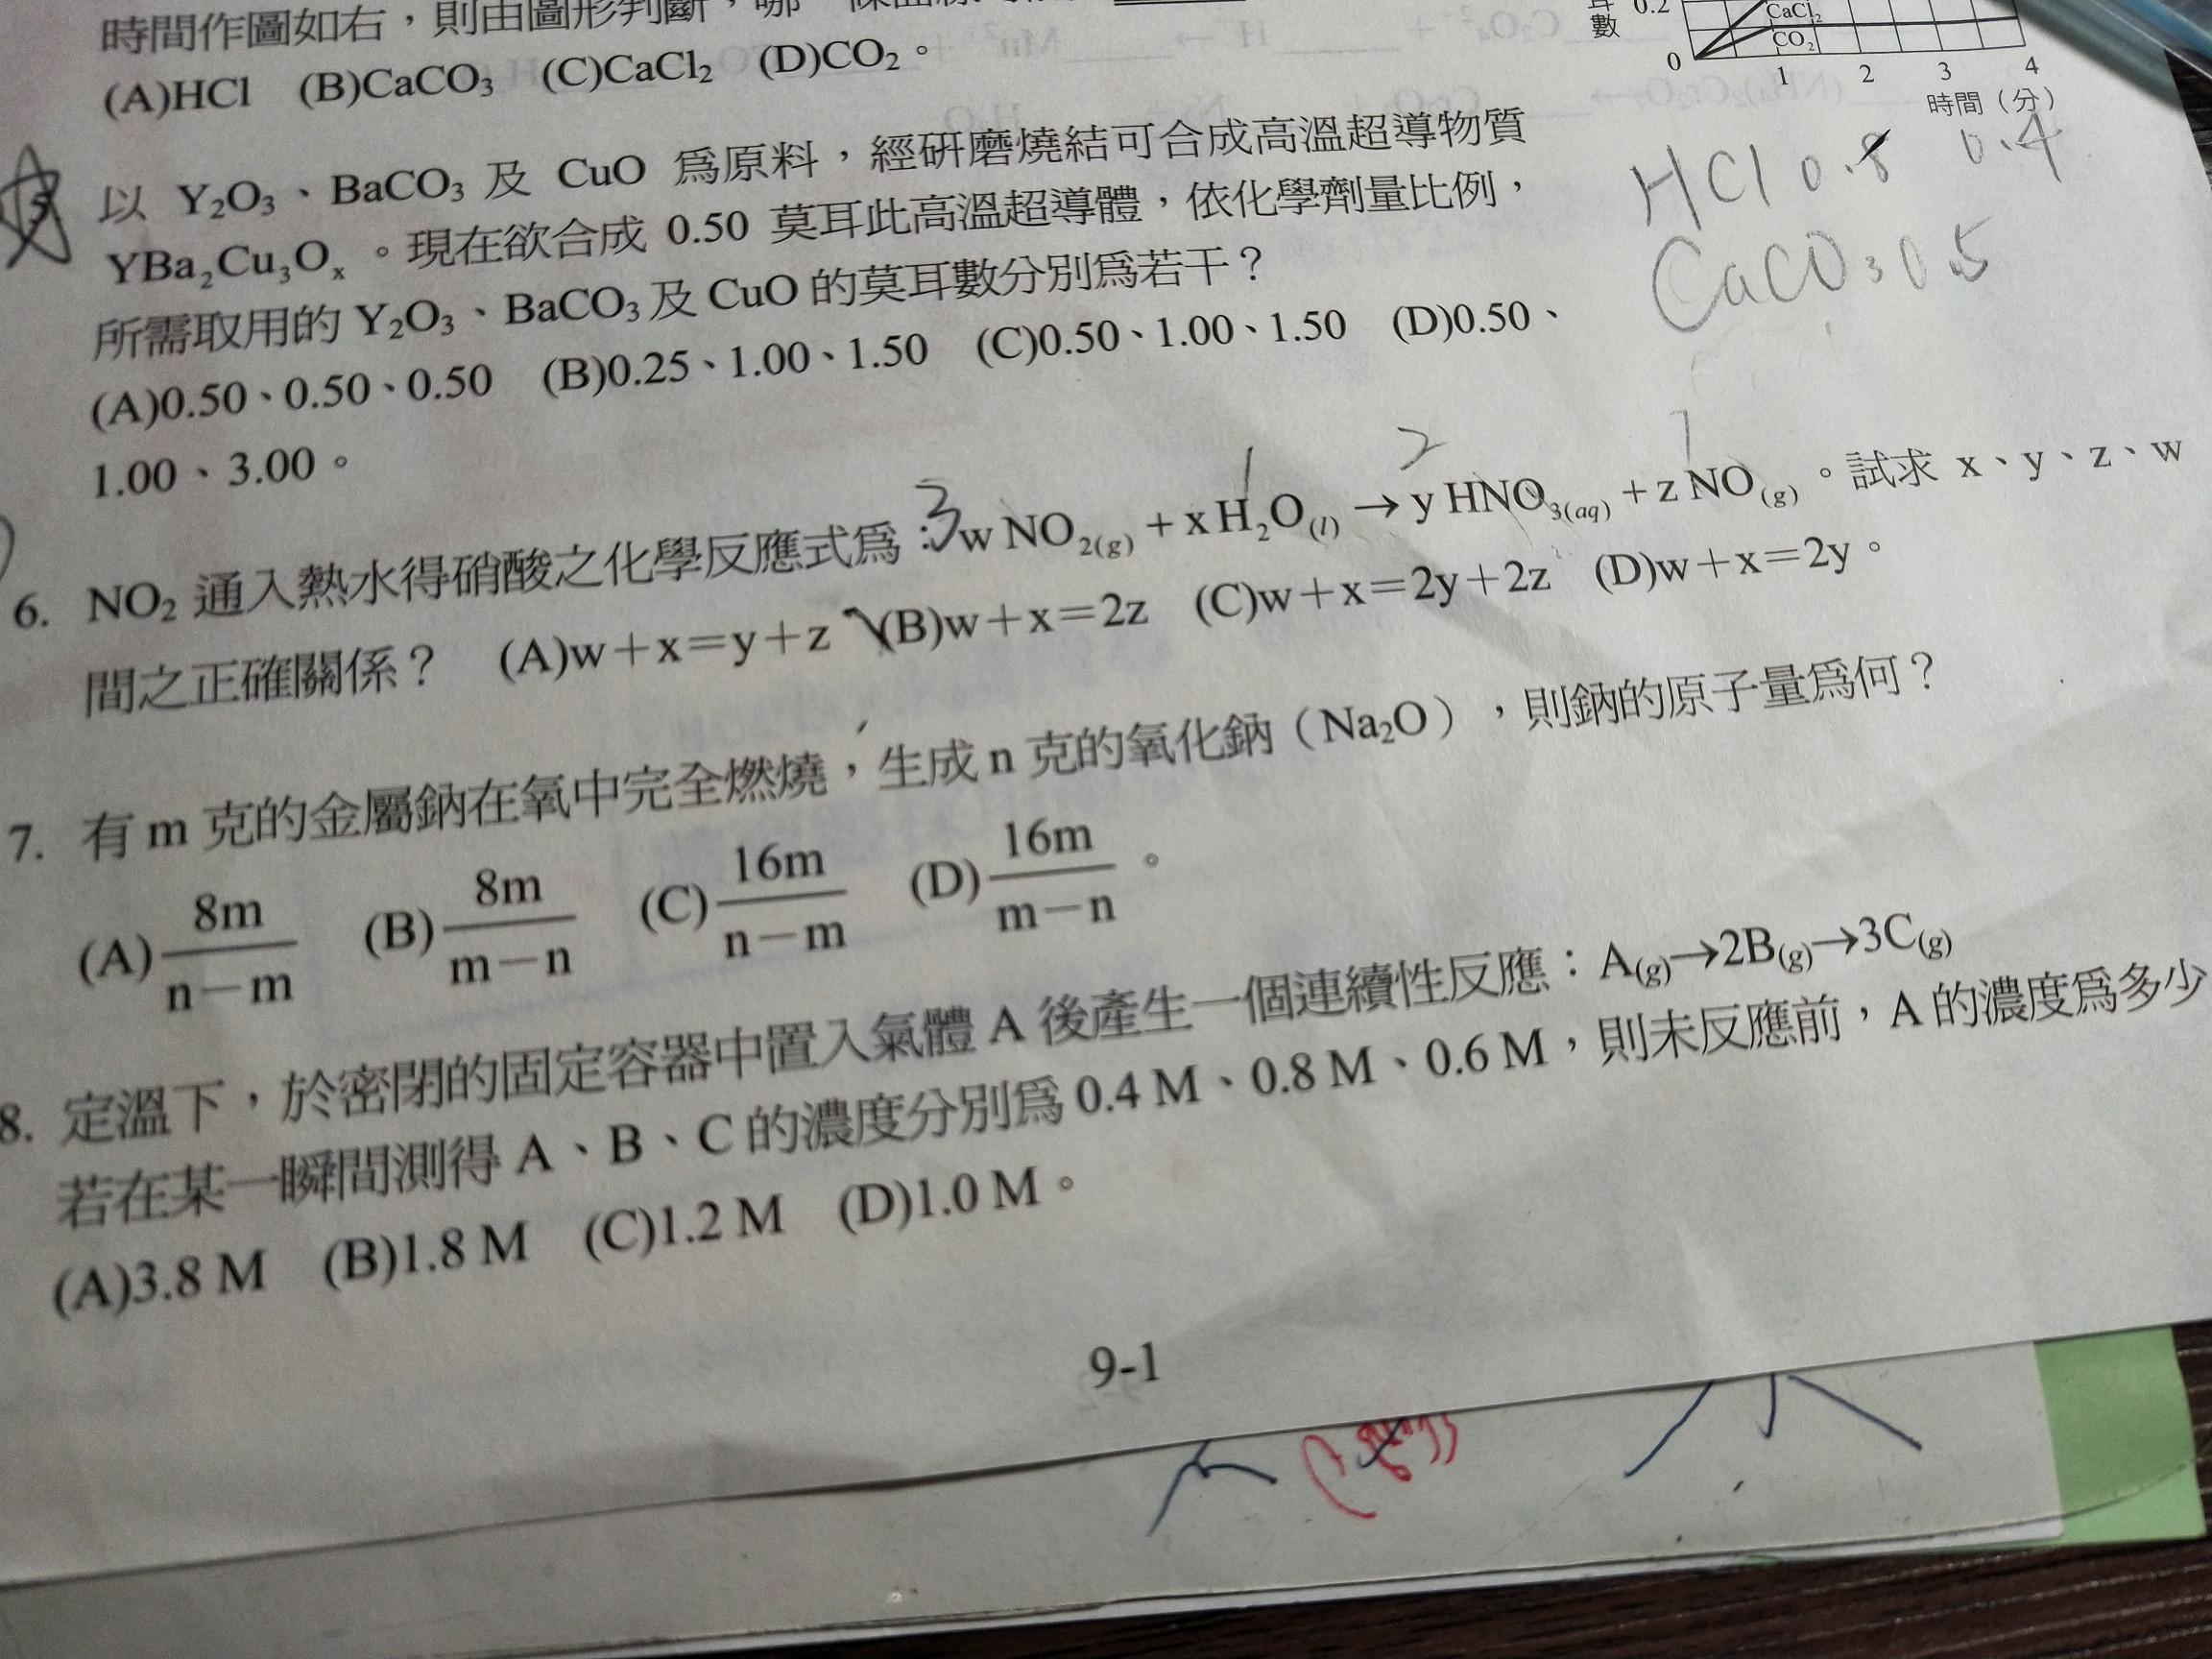 時間作圖如右，則由圖形判斷，哪一條曲線
(A)HCl (B)CaCO₃ (C)CaCl₂ (D)CO₂。
數
0.2
CaCl₂
CO₂
0 1 2 3 4
時間（分）
HCl 0.8 0.4
CaCO₃ 0.5
以 Y₂O₃、BaCO₃ 及 CuO 為原料，經研磨燒結可合成高溫超導物質
YBa₂Cu₃Oₓ。現在欲合成 0.50 莫耳此高溫超導體，依化學劑量比例，
所需取用的 Y₂O₃、BaCO₃ 及 CuO 的莫耳數分別為若干？
(A)0.50、0.50、0.50 (B)0.25、1.00、1.50 (C)0.50、1.00、1.50 (D)0.50、
1.00、3.00。
3 1 2 1
6. NO₂ 通入熱水得硝酸之化學反應式為：w NO₂(g) + x H₂O(l) → y HNO₃(aq) + z NO(g)。試求 x、y、z、w
間之正確關係？ (A)w＋x＝y＋z (B)w＋x＝2z (C)w＋x＝2y＋2z (D)w＋x＝2y。
7. 有 m 克的金屬鈉在氧中完全燃燒，生成 n 克的氧化鈉（Na₂O），則鈉的原子量為何？
(A) 8m/(n－m) (B) 8m/(m－n) (C) 16m/(n－m) (D) 16m/(m－n)。
8. 定溫下，於密閉的固定容器中置入氣體 A 後產生一個連續性反應：A(g)→2B(g)→3C(g)
若在某一瞬間測得 A、B、C 的濃度分別為 0.4 M、0.8 M、0.6 M，則未反應前，A 的濃度為多少
(A)3.8 M (B)1.8 M (C)1.2 M (D)1.0 M。
9-1